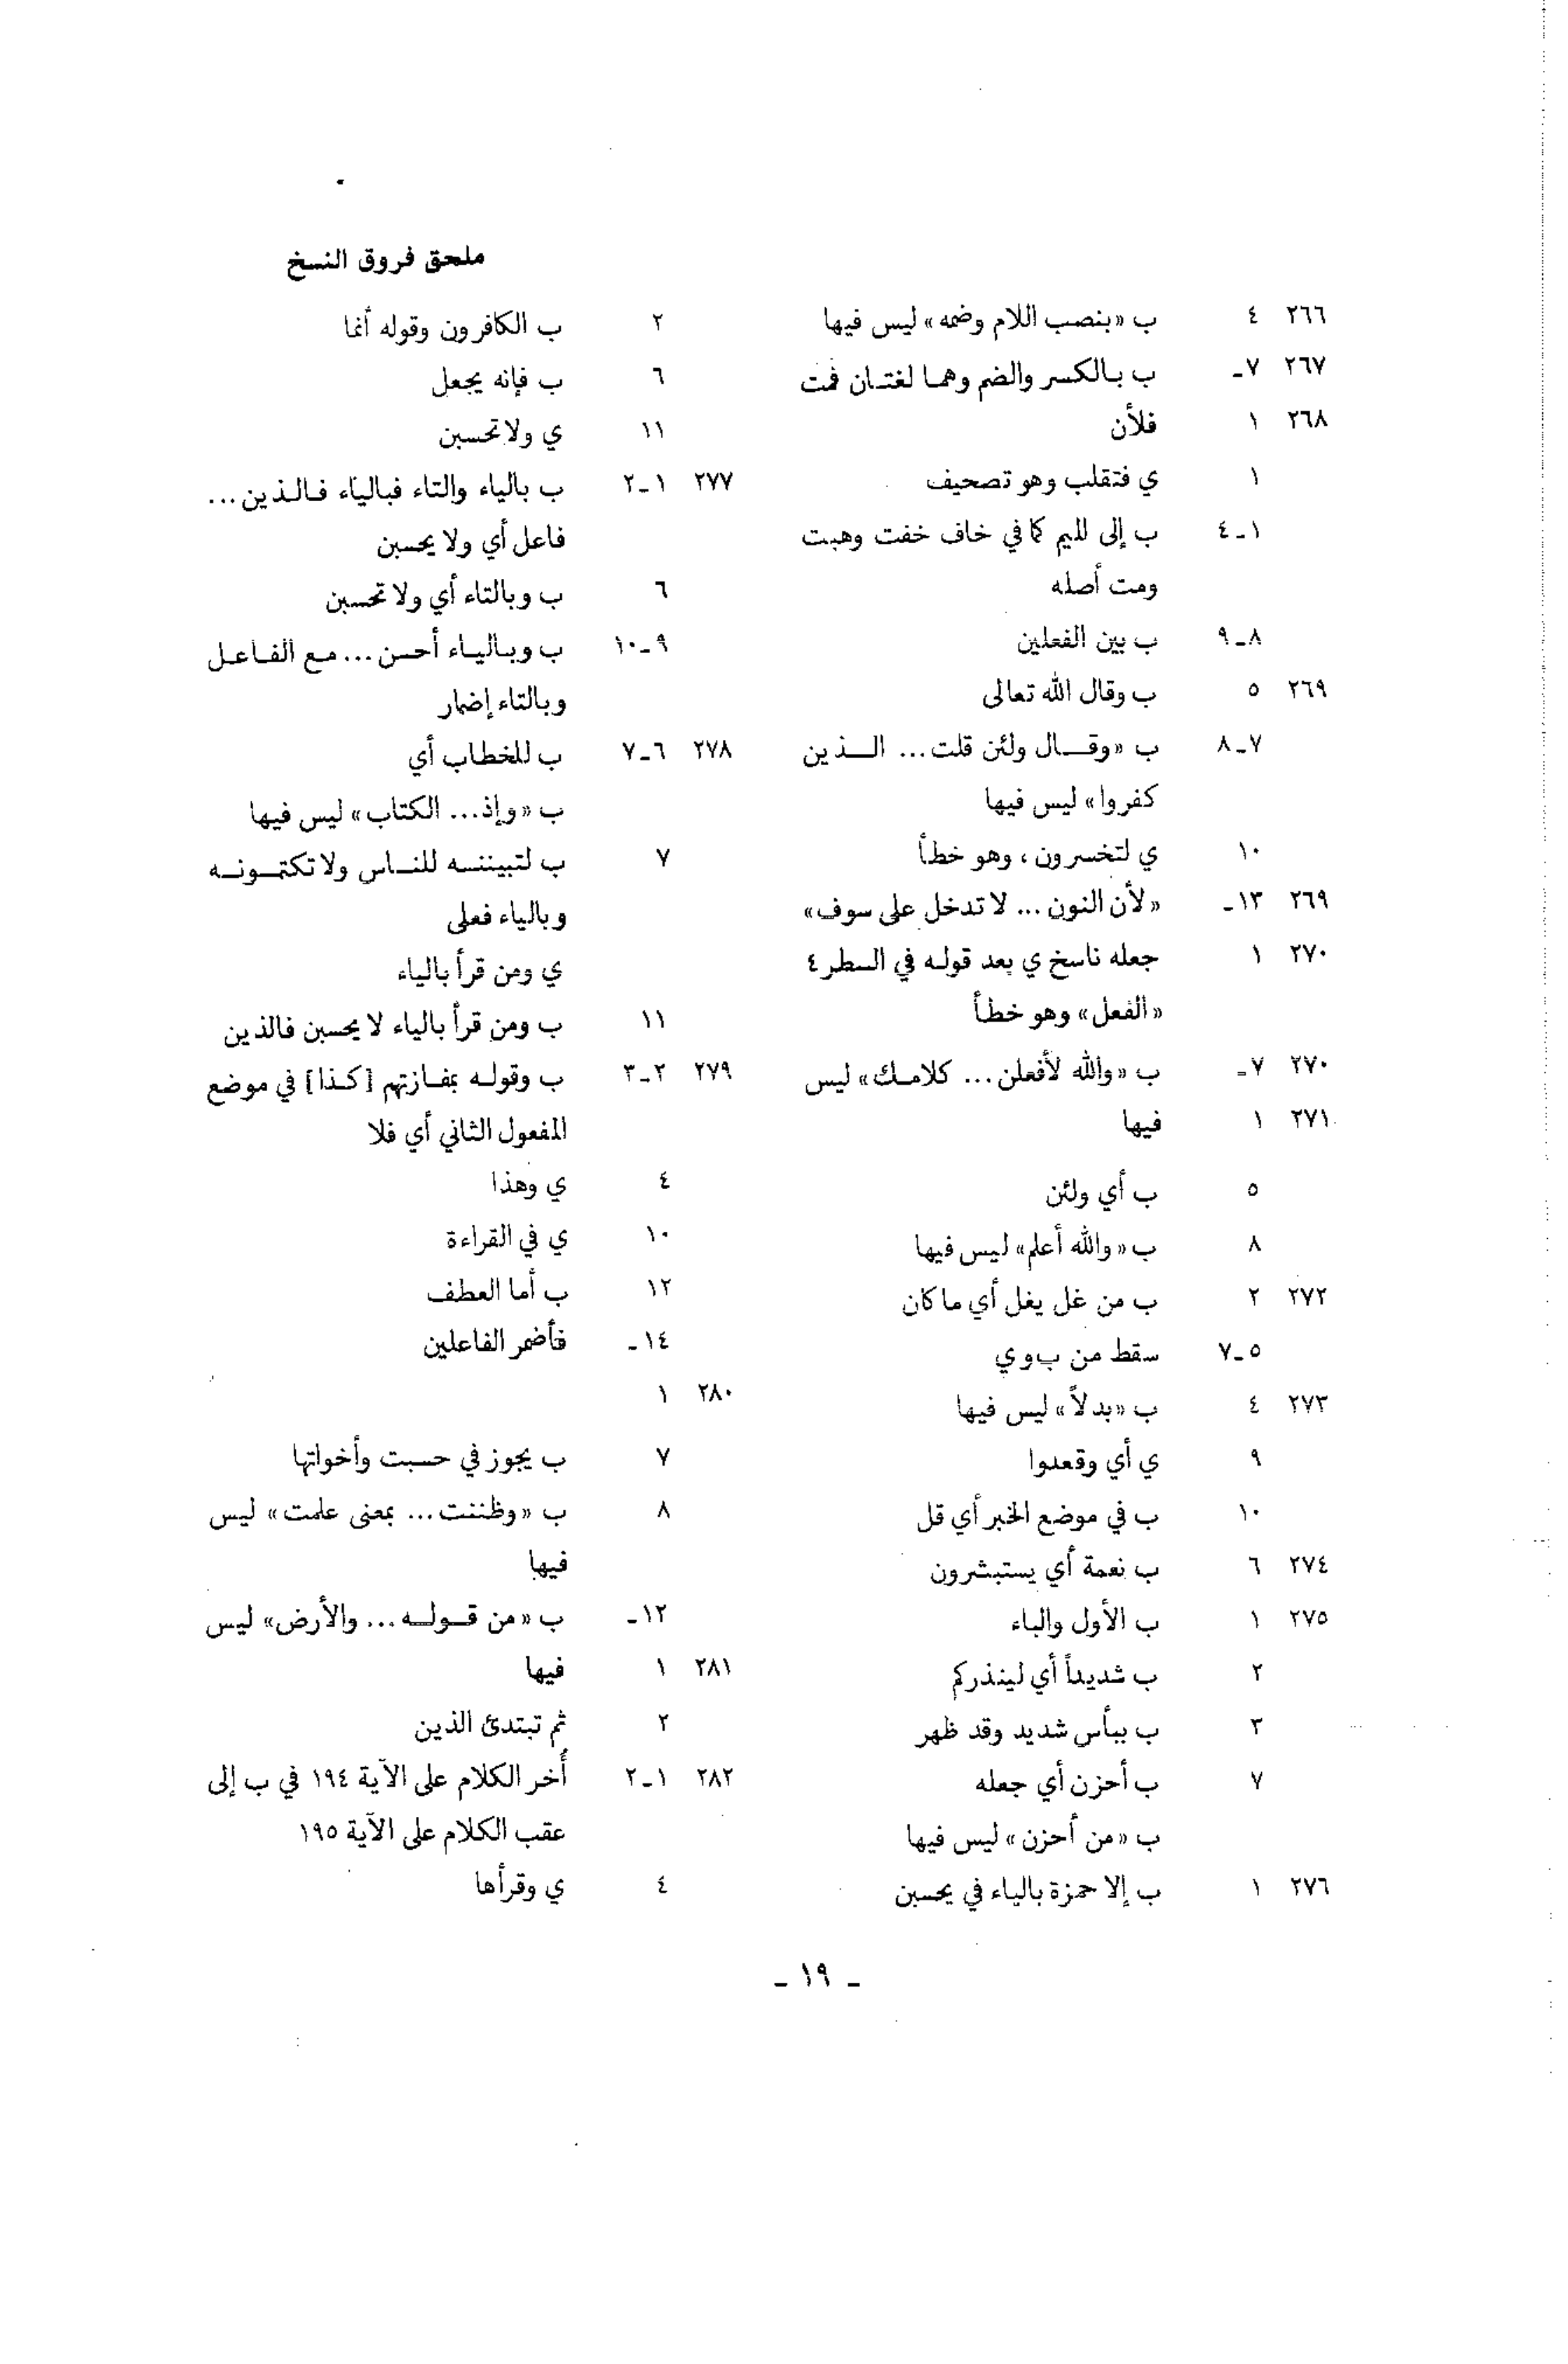 ملحق فروق النسخ
٢٦٦ ٤ ب «بنصب اللام وضمه» ليس فيها
٢٦٧ ٧ـ ب بالكسر والضم وهما لغتان فمت
٢٦٨ ١ فلأن
١ ي فتقلب وهو تصحيف
١ـ٤ ب إلى للميم كما في خاف خفت وهبت
ومت أصله
٨ـ٩ ب بين الفعلين
٢٦٩ ٥ ب وقال الله تعالى
٧ـ٨ ب «وقال ولئن قلت... الذين
كفروا» ليس فيها
١٠ ي لتخسرون، وهو خطأ
٢٦٩ ١٣ـ «لأن النون... لا تدخل على سوف»
٢٧٠ ١ جعله ناسخ ي بعد قوله في السطر ٤
«الفعل» وهو خطأ
٢٧٠ ٧ـ ب «والله لأفعلن... كلامك» ليس
٢٧١ ١ فيها
٥ ب أي ولئن
٨ ب «والله أعلم» ليس فيها
٢٧٢ ٢ ب من غل يغل أي ما كان
٥ـ٧ سقط من ب وي
٢٧٣ ٤ ب «بدلاً» ليس فيها
٩ ي أي وقعدوا
١٠ ب في موضع الخبر أي قل
٢٧٤ ٦ ب نعمة أي يستبشرون
٢٧٥ ١ ب الأول والباء
٢ ب شديداً أي لينذركم
٣ ب ببأس شديد وقد ظهر
٧ ب أحزن أي جعله
ب «من أحزن» ليس فيها
٢٧٦ ١ ب إلا حمزة بالياء في يحسبن
٢ ب الكافرون وقوله أنما
٦ ب فإنه يجعل
١١ ي ولا تحسبن
٢٧٧ ١ـ٢ ب بالياء والتاء فبالياء فالذين...
فاعل أي ولا يحسبن
٦ ب وبالتاء أي ولا تحسبن
٩ـ١٠ ب وبالياء أحسن... مع الفاعل
وبالتاء إضمار
٢٧٨ ٦ـ٧ ب للخطاب أي
ب «وإذ... الكتاب» ليس فيها
٧ ب لتبيننه للناس ولا تكتمونه
وبالياء فعلى
ي ومن قرأ بالياء
١١ ب ومن قرأ بالياء لا يحسبن فالذين
٢٧٩ ٢ـ٣ ب وقوله بمفازتهم [كذا] في موضع
المفعول الثاني أي فلا
٤ ي وهذا
١٠ ي في القراءة
١٢ ب أما العطف
١٤ـ فأضمر الفاعلين
٢٨٠ ١
٧ ب يجوز في حسبت وأخواتها
٨ ب «وظننت... بمعنى علمت» ليس
فيها
١٢ـ ب «من قوله... والأرض» ليس
٢٨١ ١ فيها
٢ ثم تبتدئ الذين
٢٨٢ ١ـ٢ أُخر الكلام على الآية ١٩٤ في ب إلى
عقب الكلام على الآية ١٩٥
٤ ي وقرأها
ـ ١٩ ـ